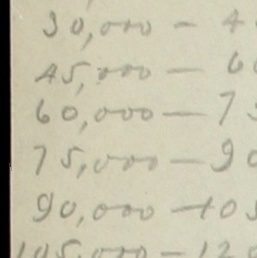 30,000 - 4
45,000 - 6
60,000 - 7
75,000 - 90
90,000 - 105
105,000 - 120